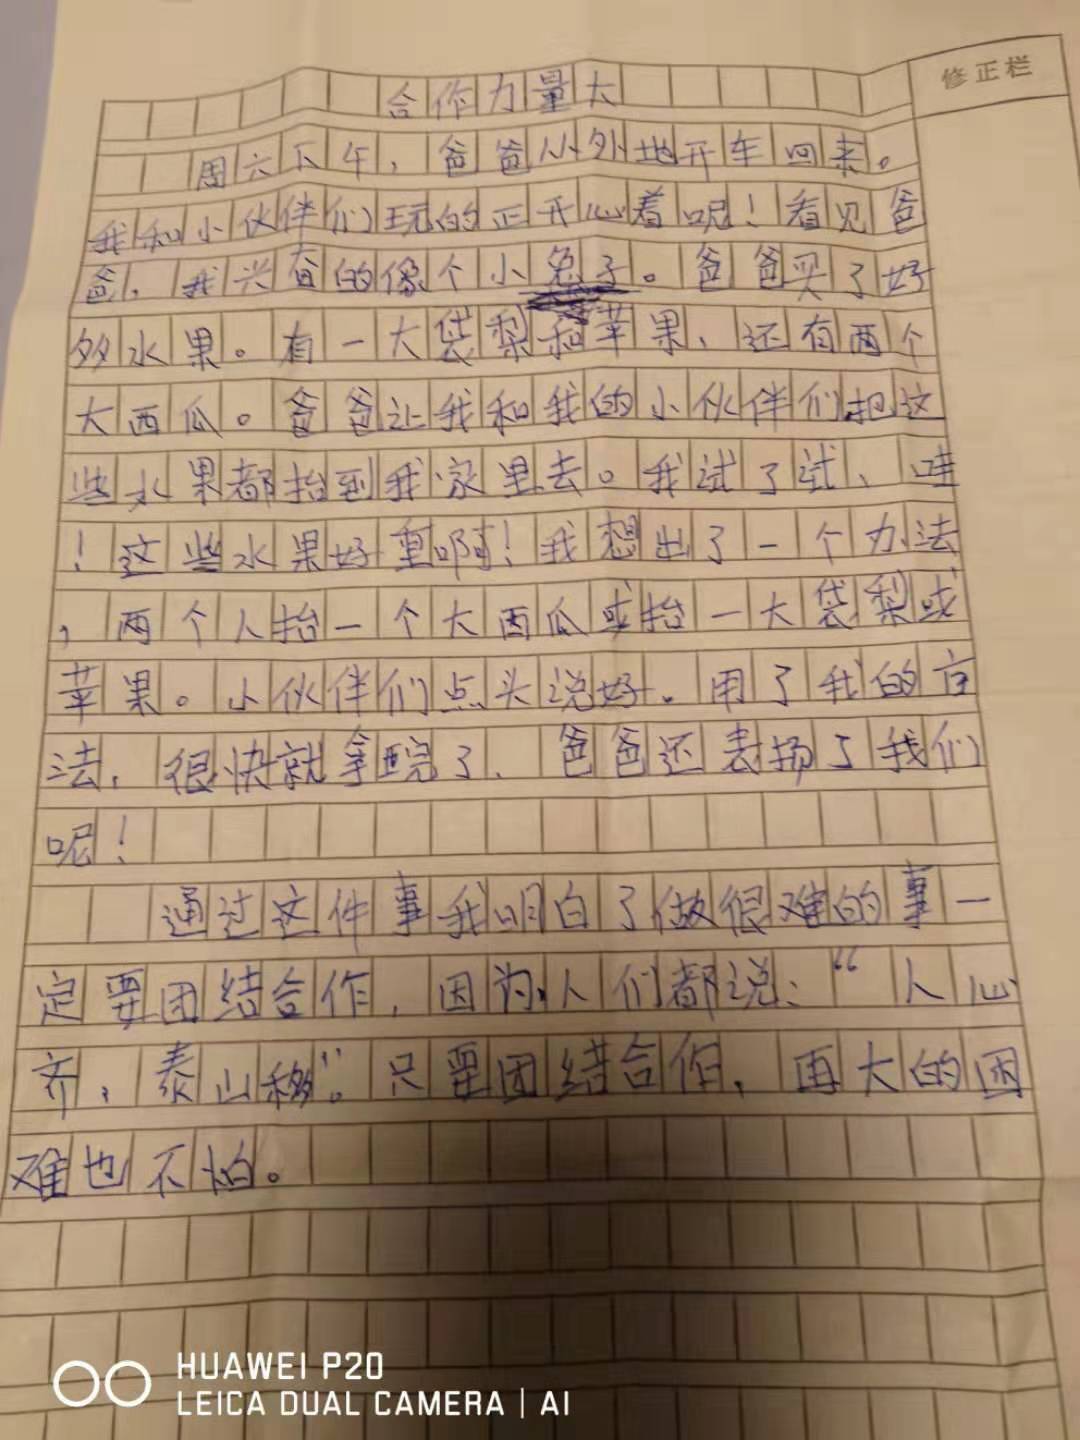 修正栏
合作力量大
周六下午，爸爸从外地开车回来。
我和小伙伴们玩的正开心着呢！看见爸
爸，我兴奋的像个小兔子。爸爸买了好
多水果。有一大袋梨和苹果、还有两个
大西瓜。爸爸让我和我的小伙伴们把这
些水果都抬到我家里去。我试了试、哇
！这些水果好重啊！我想出了一个办法
，两个人抬一个大西瓜或抬一大袋梨或
苹果。小伙伴们点头说好。用了我的方
法，很快就拿完了、爸爸还表扬了我们
呢！
通过这件事我明白了做很难的事一
定要团结合作，因为人们都说：“人心
齐，泰山移”。只要团结合作，再大的困
难也不怕。
HUAWEI P20
LEICA DUAL CAMERA | AI